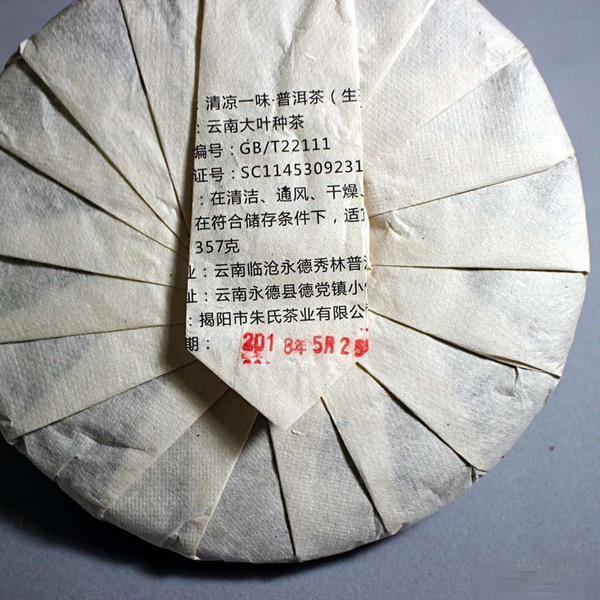 : 清凉一味·普洱茶（生
: 云南大叶种茶
编号: GB/T22111
证号: SC1145309231
: 在清洁、通风、干燥、
在符合储存条件下，适宜
357克
业: 云南临沧永德秀林普洱
址: 云南永德县德党镇小
: 揭阳市朱氏茶业有限公
期: 2018年5月2